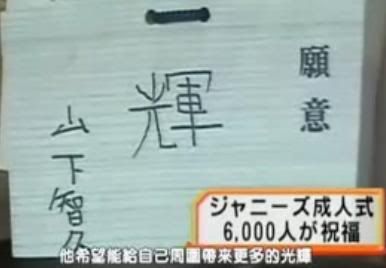 願意
輝
山下智久
ジャニーズ成人式
6,000人が祝福
他希望能給自己周圍帶來更多的光輝